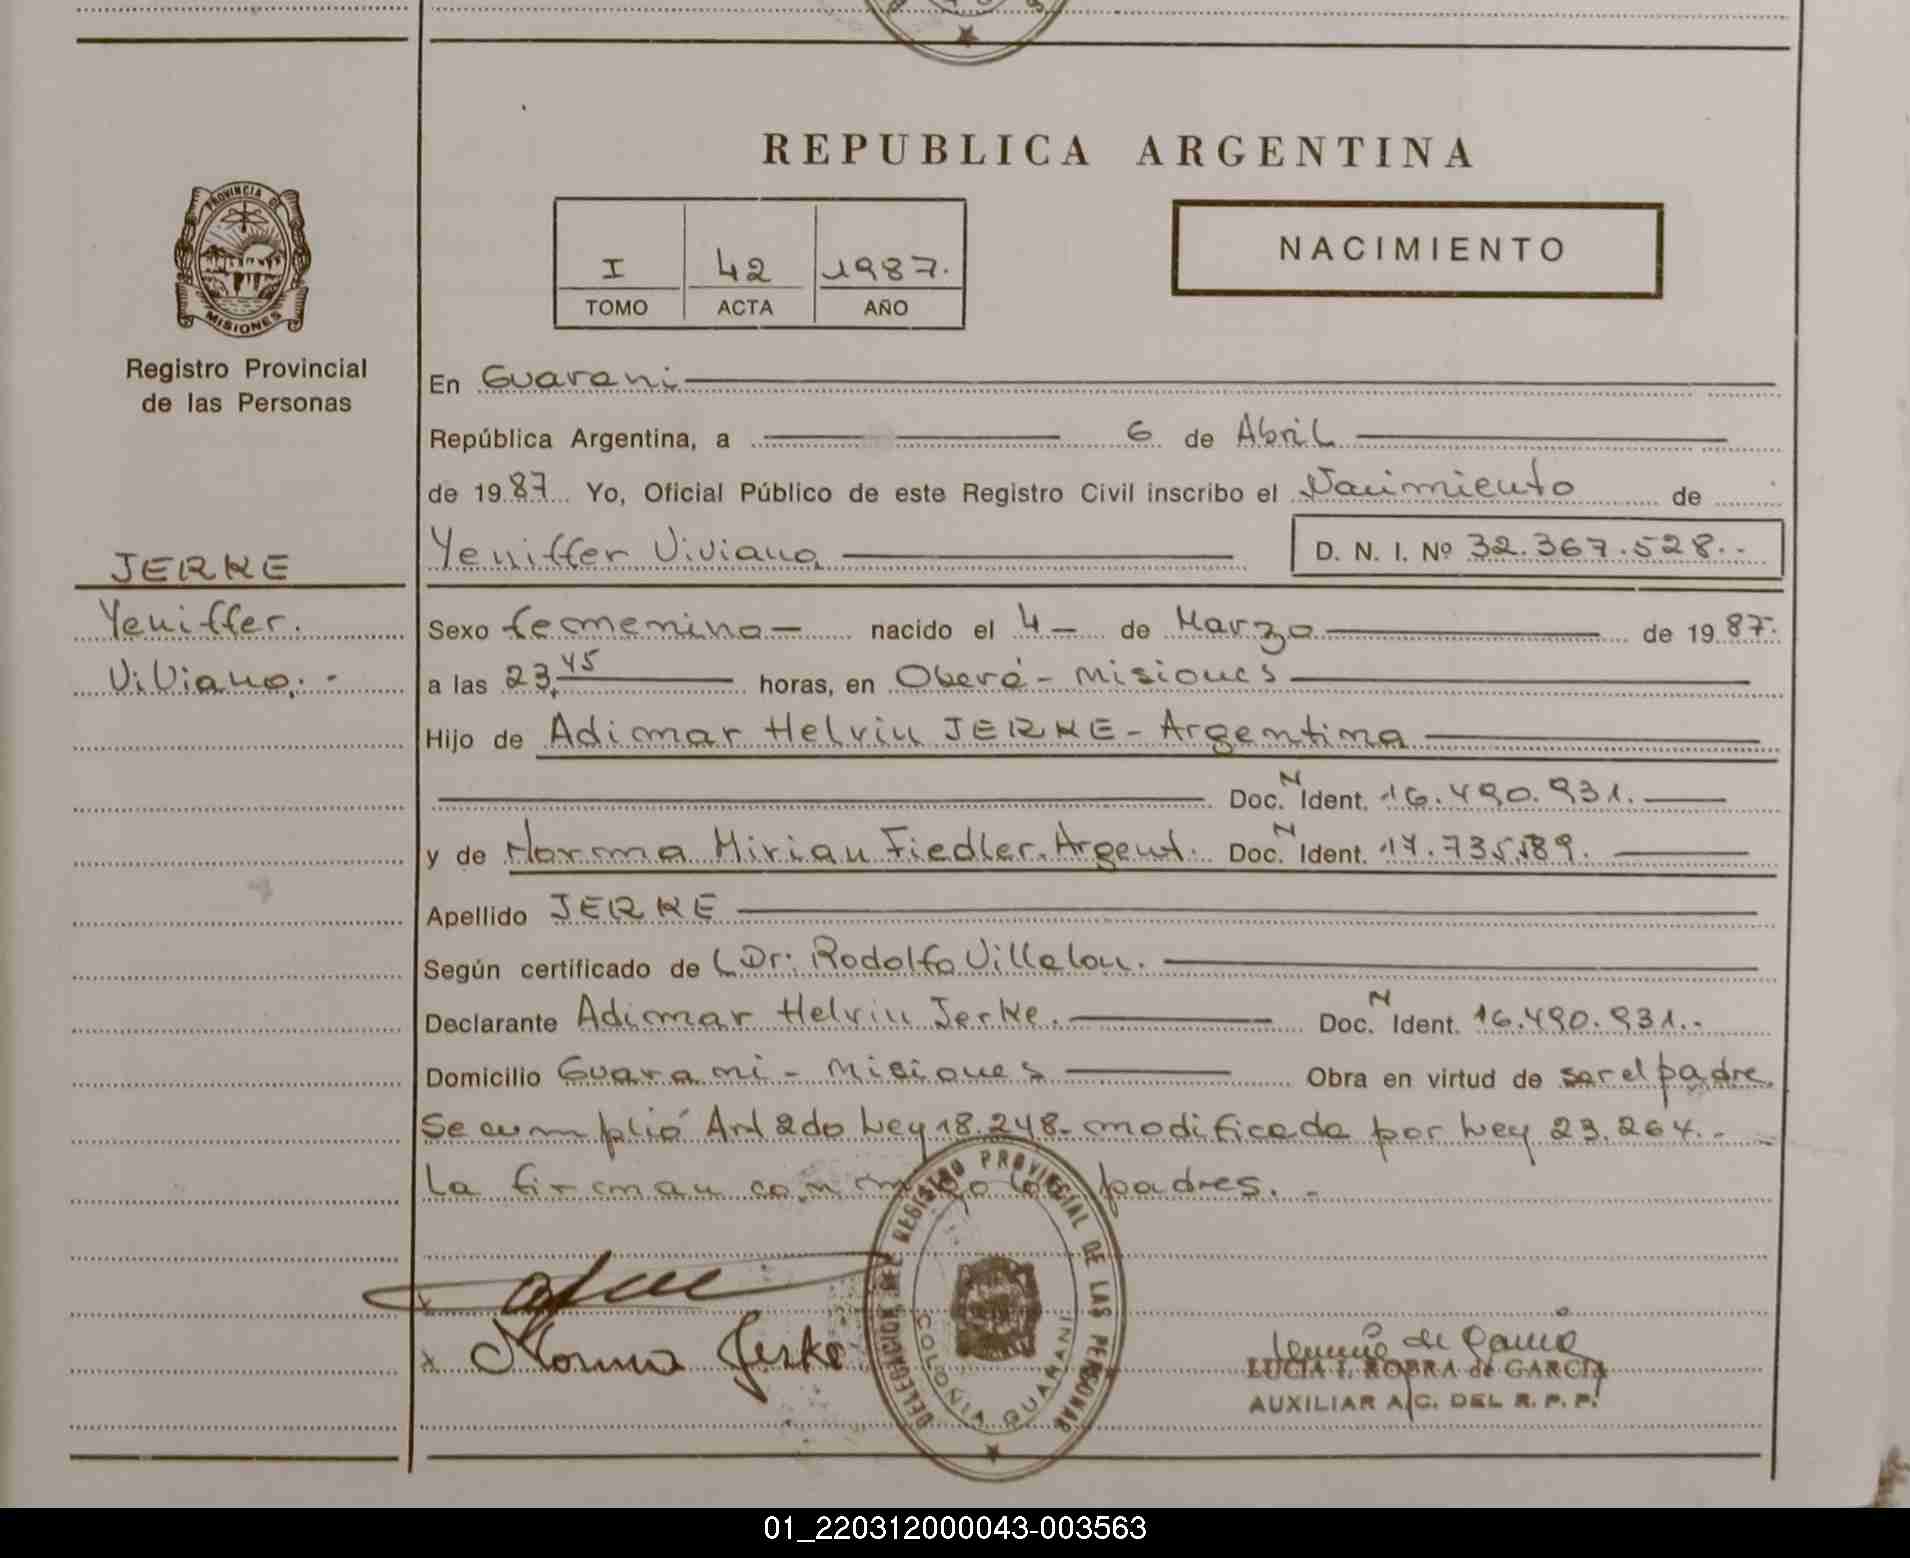 REPUBLICA ARGENTINA
PROVINCIA DE
MISIONES
Registro Provincial
de las Personas
I 42 1987.
TOMO ACTA AÑO
NACIMIENTO
En Guarani
República Argentina, a 6 de Abril
de 1987 Yo, Oficial Público de este Registro Civil inscribo el Nacimiento de
Yeniffer Viviana D. N. I. Nº 32.367.528.-
JERKE
Yeniffer.
Viviana.-
Sexo femenino— nacido el 4— de Marzo de 1987.
a las 23,45 horas, en Oberá - Misiones
Hijo de Adimar Helvin JERKE - Argentina
Doc. N Ident. 16.490.931.
y de Norma Mirian Fiedler. Argent. Doc. N Ident. 17.735.589.
Apellido JERKE
Según certificado de Dr: Rodolfo Villalon.
Declarante Adimar Helvin Jerke. Doc. N Ident. 16.490.931.-
Domicilio Guarani - Misiones Obra en virtud de ser el padre.
Se cumplió Art 2do Ley 18.248- modificada por Ley 23.264.-
La firman conmigo los padres.-
DELEGACION DEL REGISTRO PROVINCIAL DE LAS PERSONAS
COLONIA GUARANI
Norma Jerke
LUCIA I. ROBRA de GARCIA
AUXILIAR A/C. DEL R. P. P.
01_220312000043-003563